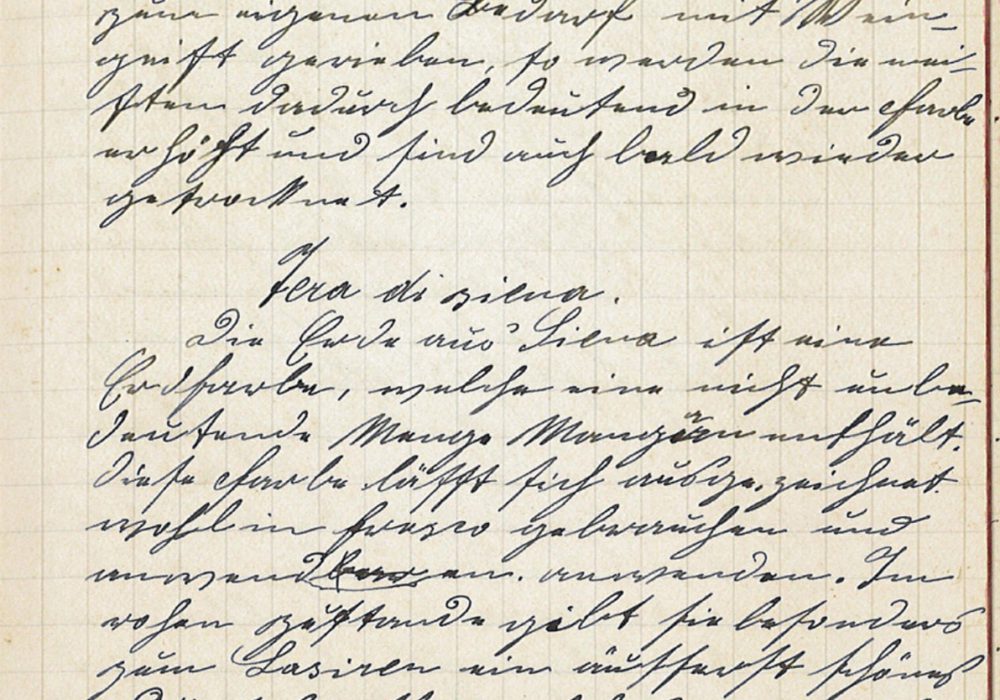 zum eigenen Bedarf mit Wein-
geist gerieben, so werden die mei-
sten dadurch bedeutend in der Farbe
erhöht und sind auch bald wieder
getrocknet.
Tera di siena.
Die Erde aus Siena ist eine
Erdfarbe, welche eine nicht unbe-
deutende Menge Mangan enthält.
Diese Farbe läßt sich ausgezeichnet
wohl in fresco gebrauchen und
anwenden. anwenden. Im
rohen Zustande gibt sie besonders
zum Lasiren ein äusserst schönes